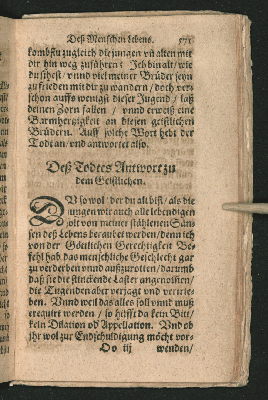 Deß Menschen Lebens.
kombstu zugleich die jungen vñ alten mit
dir hin weg zuführen? Ich bin alt / wie
du sihest / vnnd viel meiner Brüder seyn
zu frieden mit dir zu wandern / doch ver-
schon auffs wenigst dieser Jugend / laß
deinen Zorn fallen / vnnd erweiß eine
Barmhertzigkeit an diesen geistlichen
Brüdern. Auff solche Wort hebt der
Todt an / vnd antwortet also.
Deß Todtes Antwort zu
dem Geistlichen.
DU so wol der du alt bist / als die
jungen wie auch alle lebendigen
solt von meiner stählenen Sänsen
deß Lebens beraubet werden / denn ich
von der Göttlichen Gerechtigkeit Be-
fehl hab das menschliche Geschlecht gar
zu verderben vnnd außzurotten / darumb
daß sie die stinckende Laster angenomen /
die Tugenden aber verjagt vnd vertrie-
ben. Vnnd weil das alles soll vnnd muß
exequirt werden / so hilfft da kein Bitt /
kein Dilation od Appellation. Vnd ob
jhr wol zur Endschuldigung möcht vor-
Oo iij wenden /